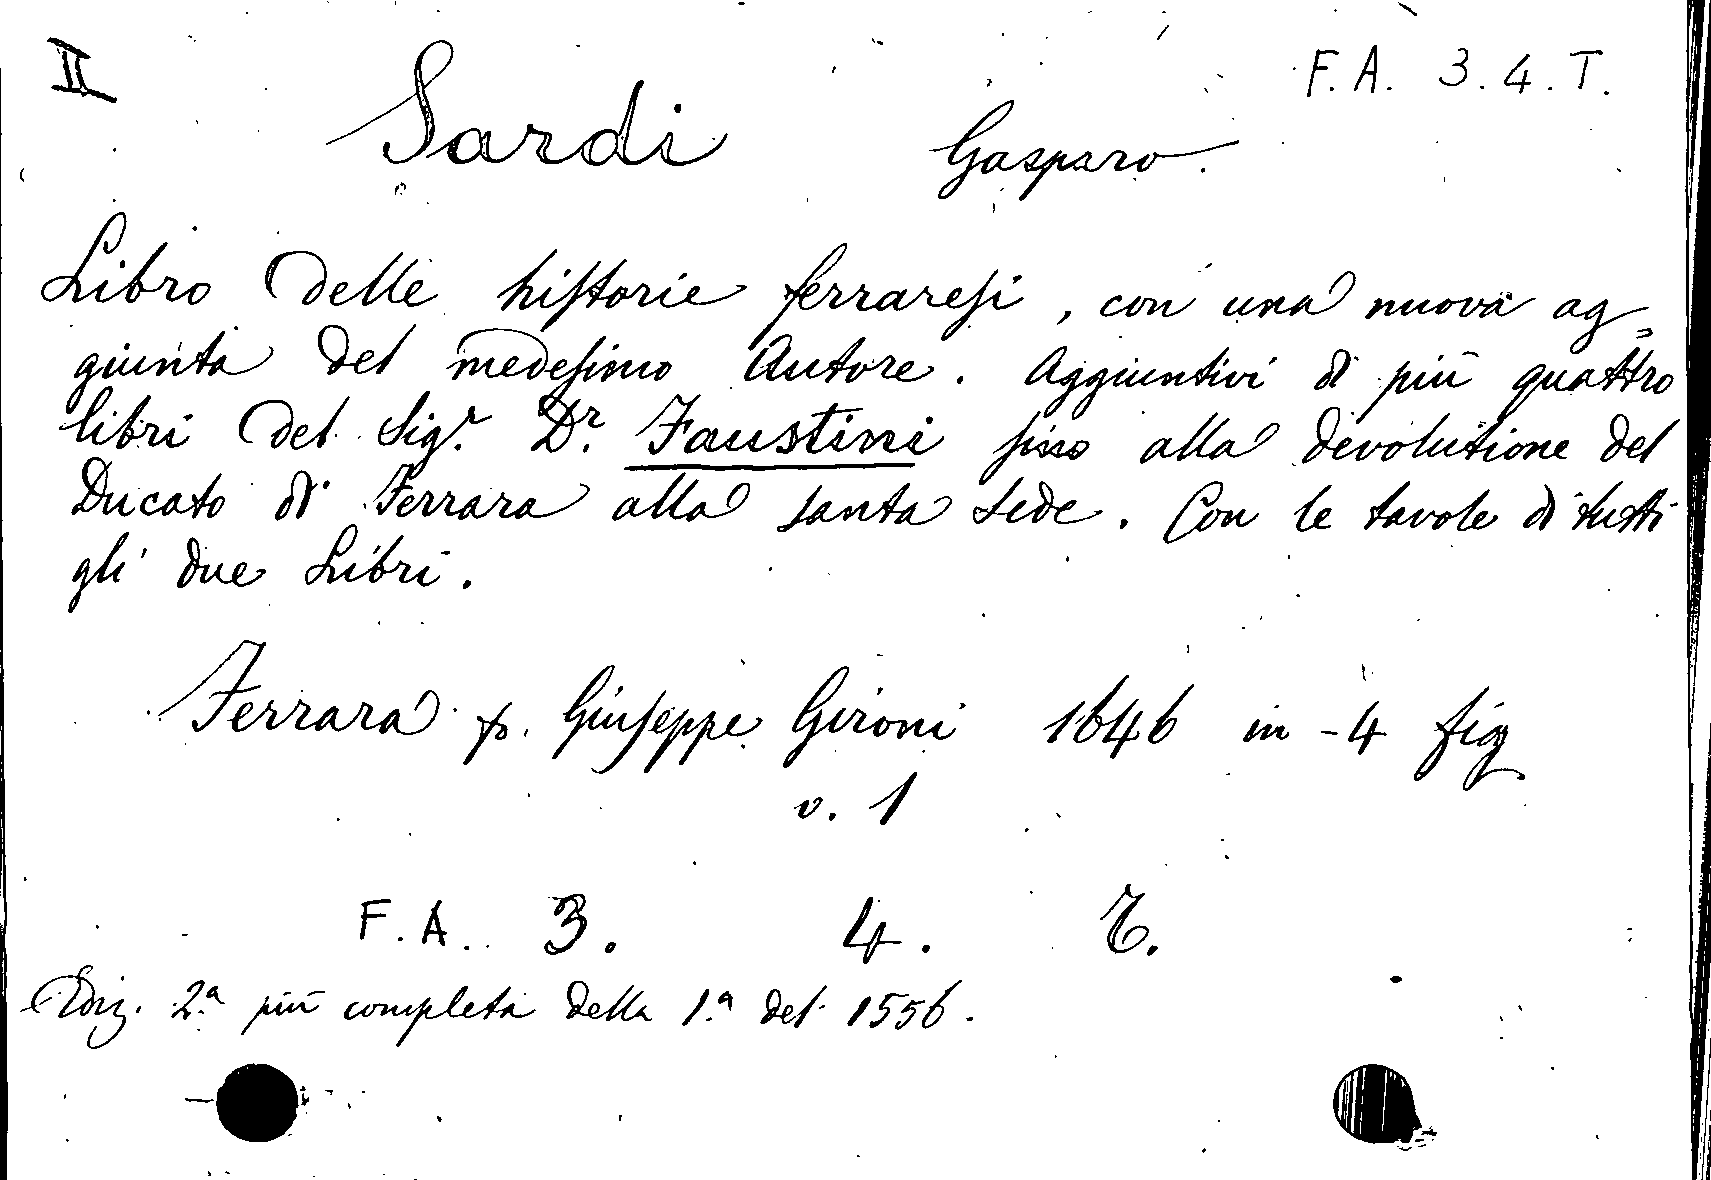 II
F. A. 3. 4. T.
Sardi Gasparo.
Libro delle historie ferraresi, con una nuova ag=
giunta del medesimo Autore. Aggiuntivi di più quattro
libri del Sig.r D.r Faustini sino alla devolutione del
Ducato di Ferrara alla santa Sede. Con le tavole di tutti
gli due Libri.
Ferrara p. Giuseppe Gironi 1646 in-4 fig
v. 1
F. A. 3. 4. T.
Ediz. 2.a più completa della 1.a del 1556.